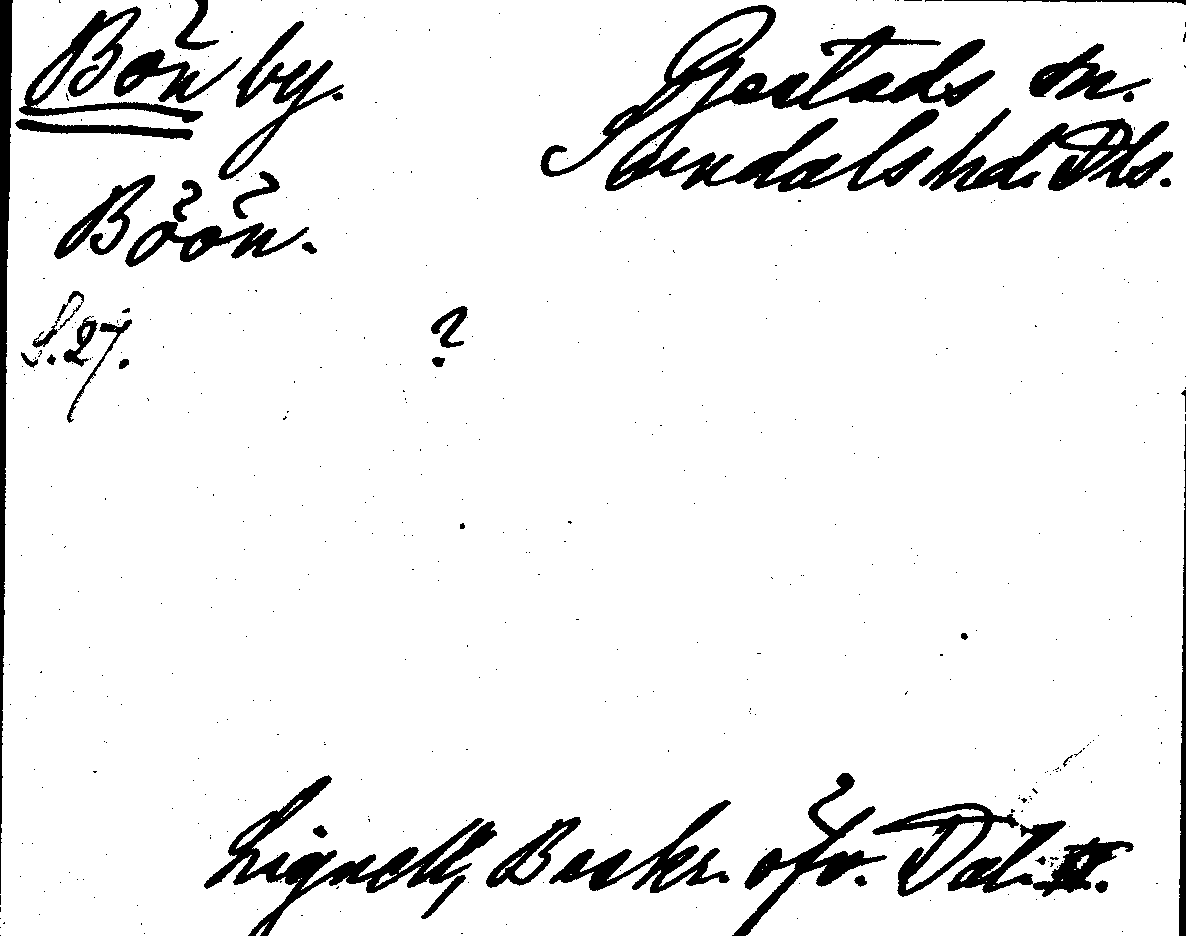 Bön by. Gestads sn.
Sundals hd. Dls.
Böön.
S. 27. ?
Lignell, Beskr. öfv. Dal. II.